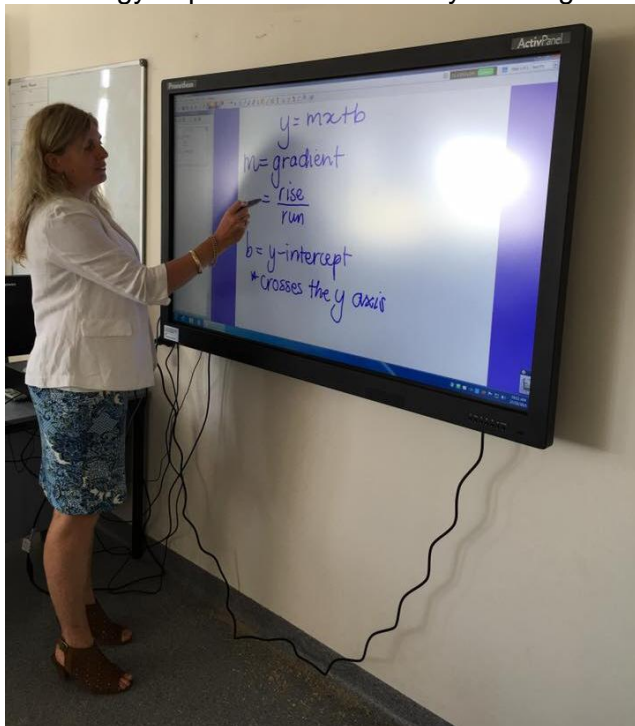 ActivPanel
Promethean
y = mx+b
m = gradient
= rise
run
b = y-intercept
* crosses the y axis